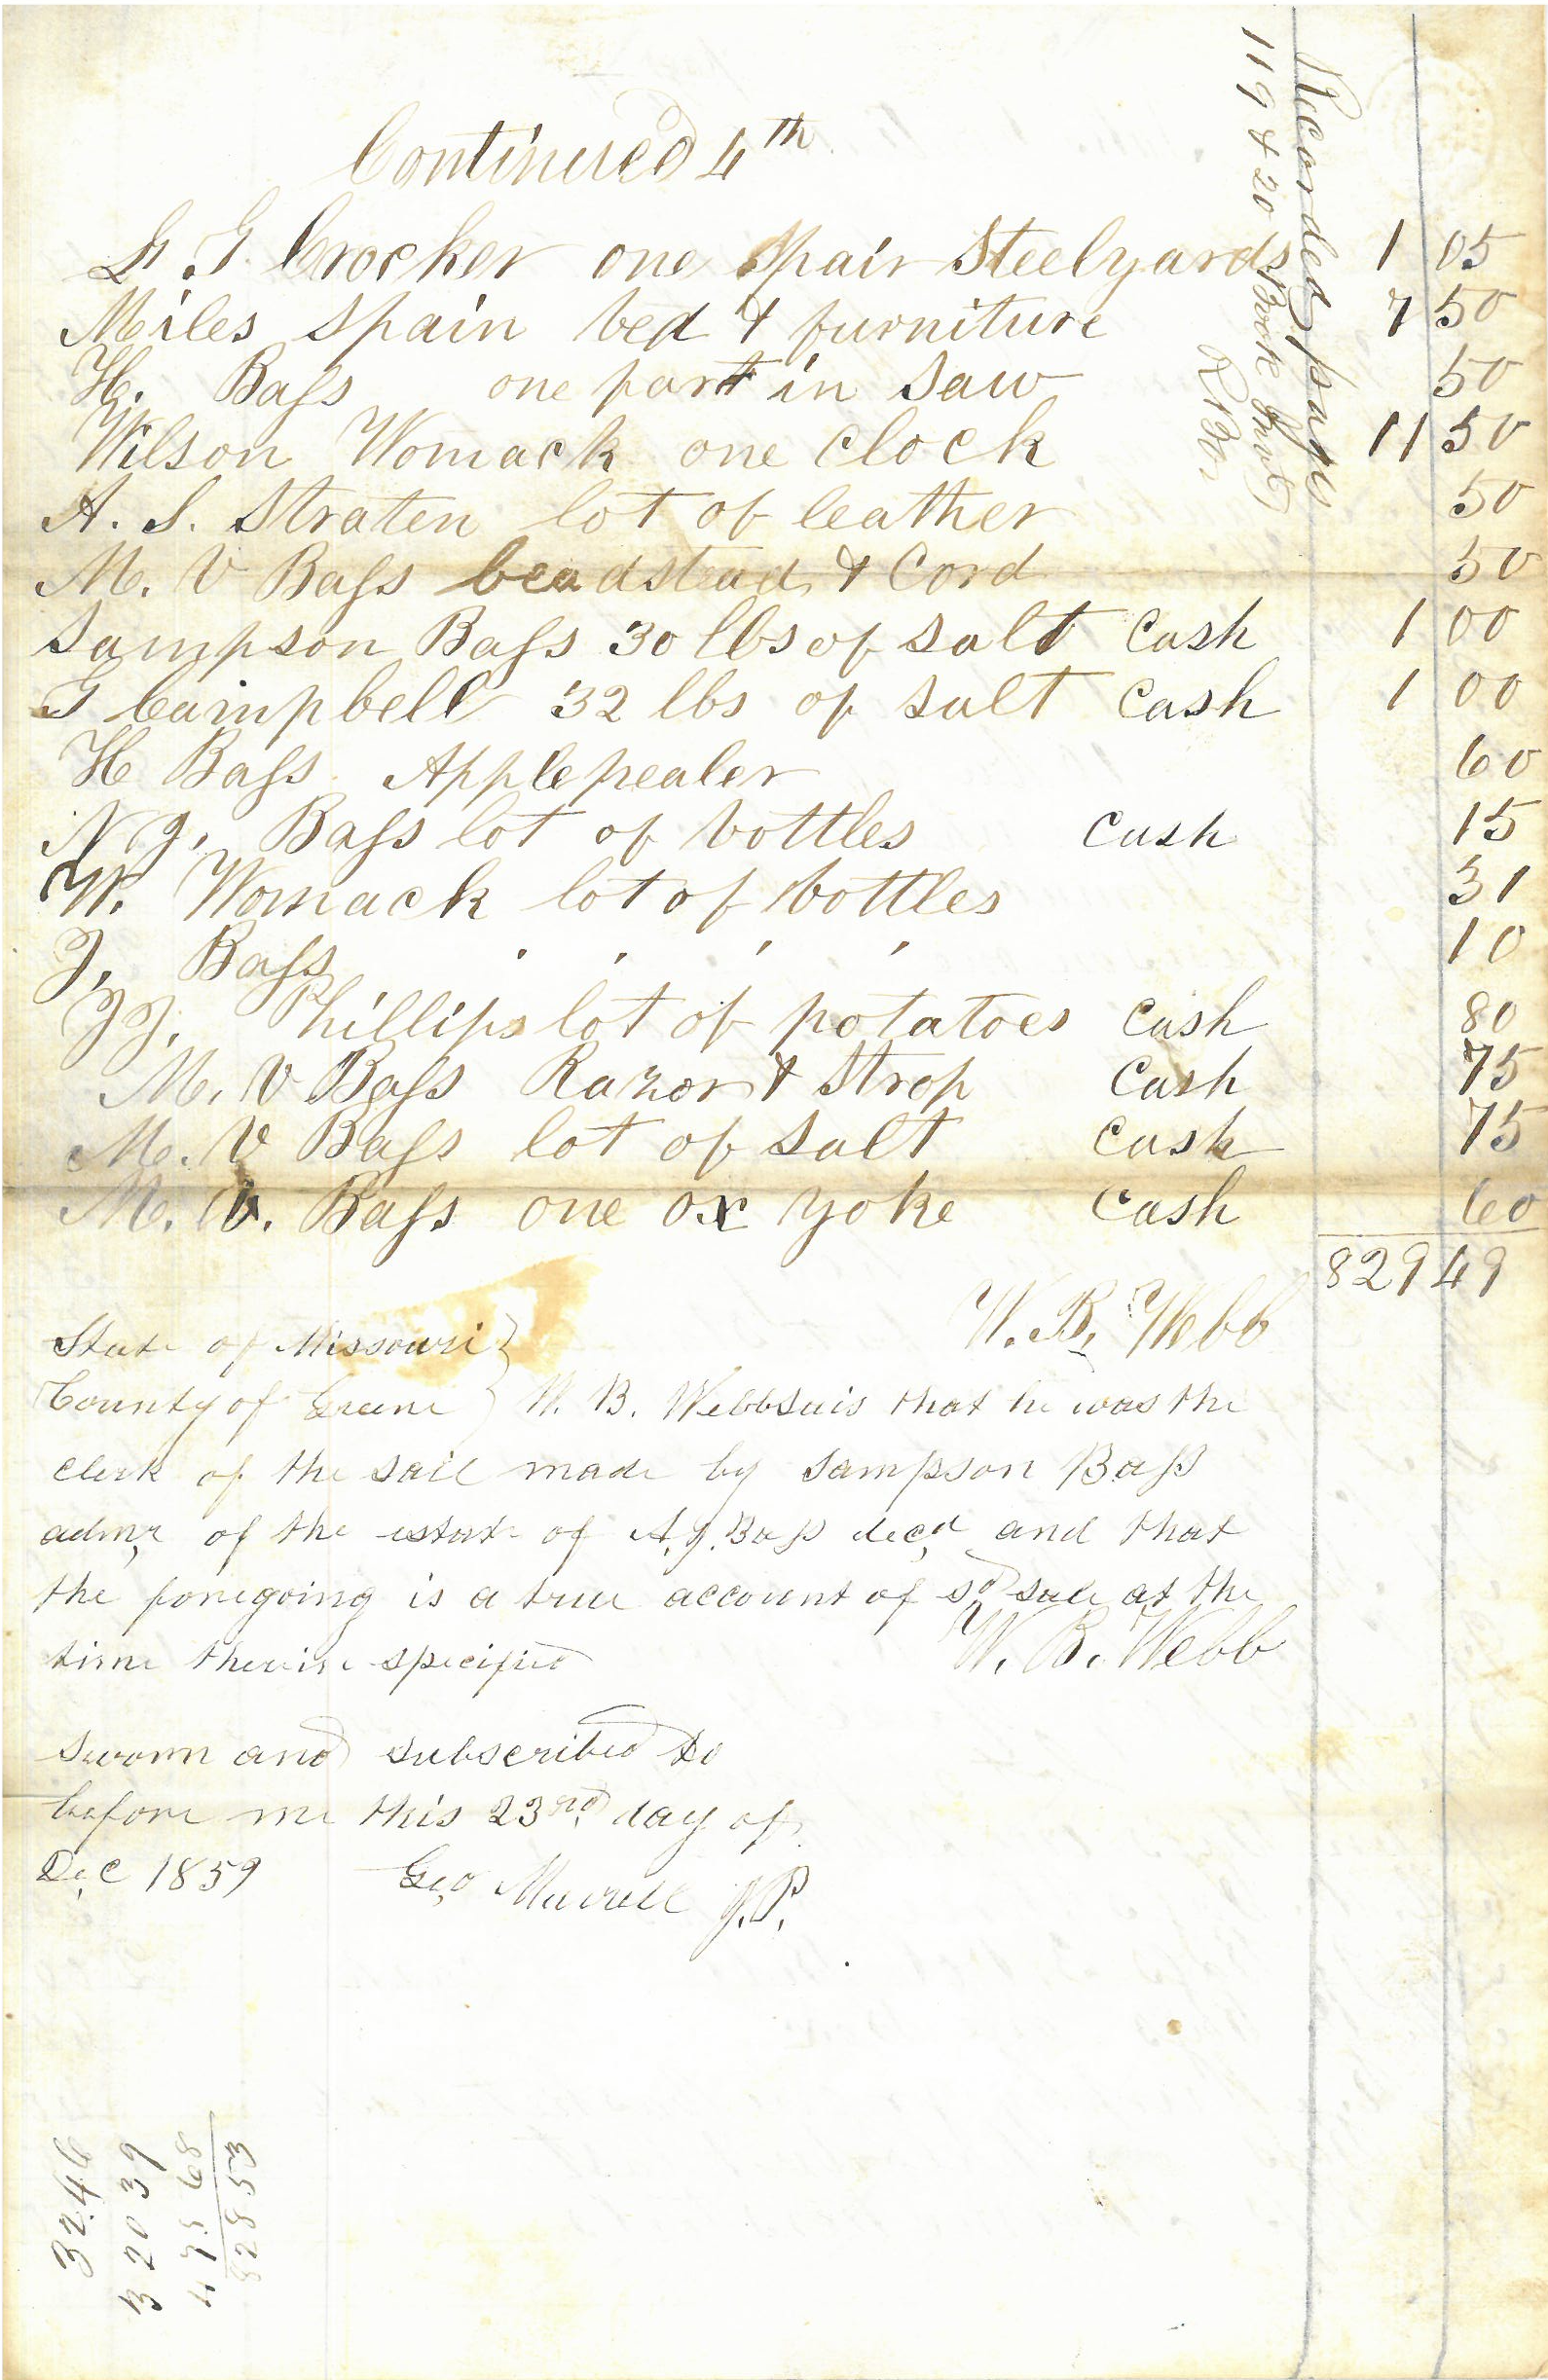 Continued 4th
L. G. Crocker one pair Steelyards 1 05
Miles Spain bed & furniture 7 50
H. Bass one part in Saw 50
Wilson Womack one Clock 11 50
A. S. Straten lot of leather 50
M. V Bass beadstead & Cord 50
Sampson Bass 30 lbs of salt Cash 1 00
G Campbell 32 lbs of salt Cash 1 00
H Bass Applepealer 60
N J. Bass lot of bottles Cash 15
W. Womack lot of bottles 31
J. Bass ' ' ' ' 10
J J. Phillips lot of potatoes Cash 80
M. V Bass Razor & Strop Cash 75
M. V Bass lot of salt Cash 75
M. V. Bass one ox yoke Cash 60
829 49
W. B. Webb
State of Missouri }
County of Greene } W. B. Webb sais that he was the
clerk of the sail made by Sampson Bass
admr, of the estate of A. J. Bass decd, and that
the foregoing is a true account of sd sale at the
time therein specified W. B. Webb
Sworn and subscribed to
before me this 23rd day of
Dec 1859 Geo Murrell J.P.
Recorded pages
119 & 20 Book
3246
320 39
475 68
828 53